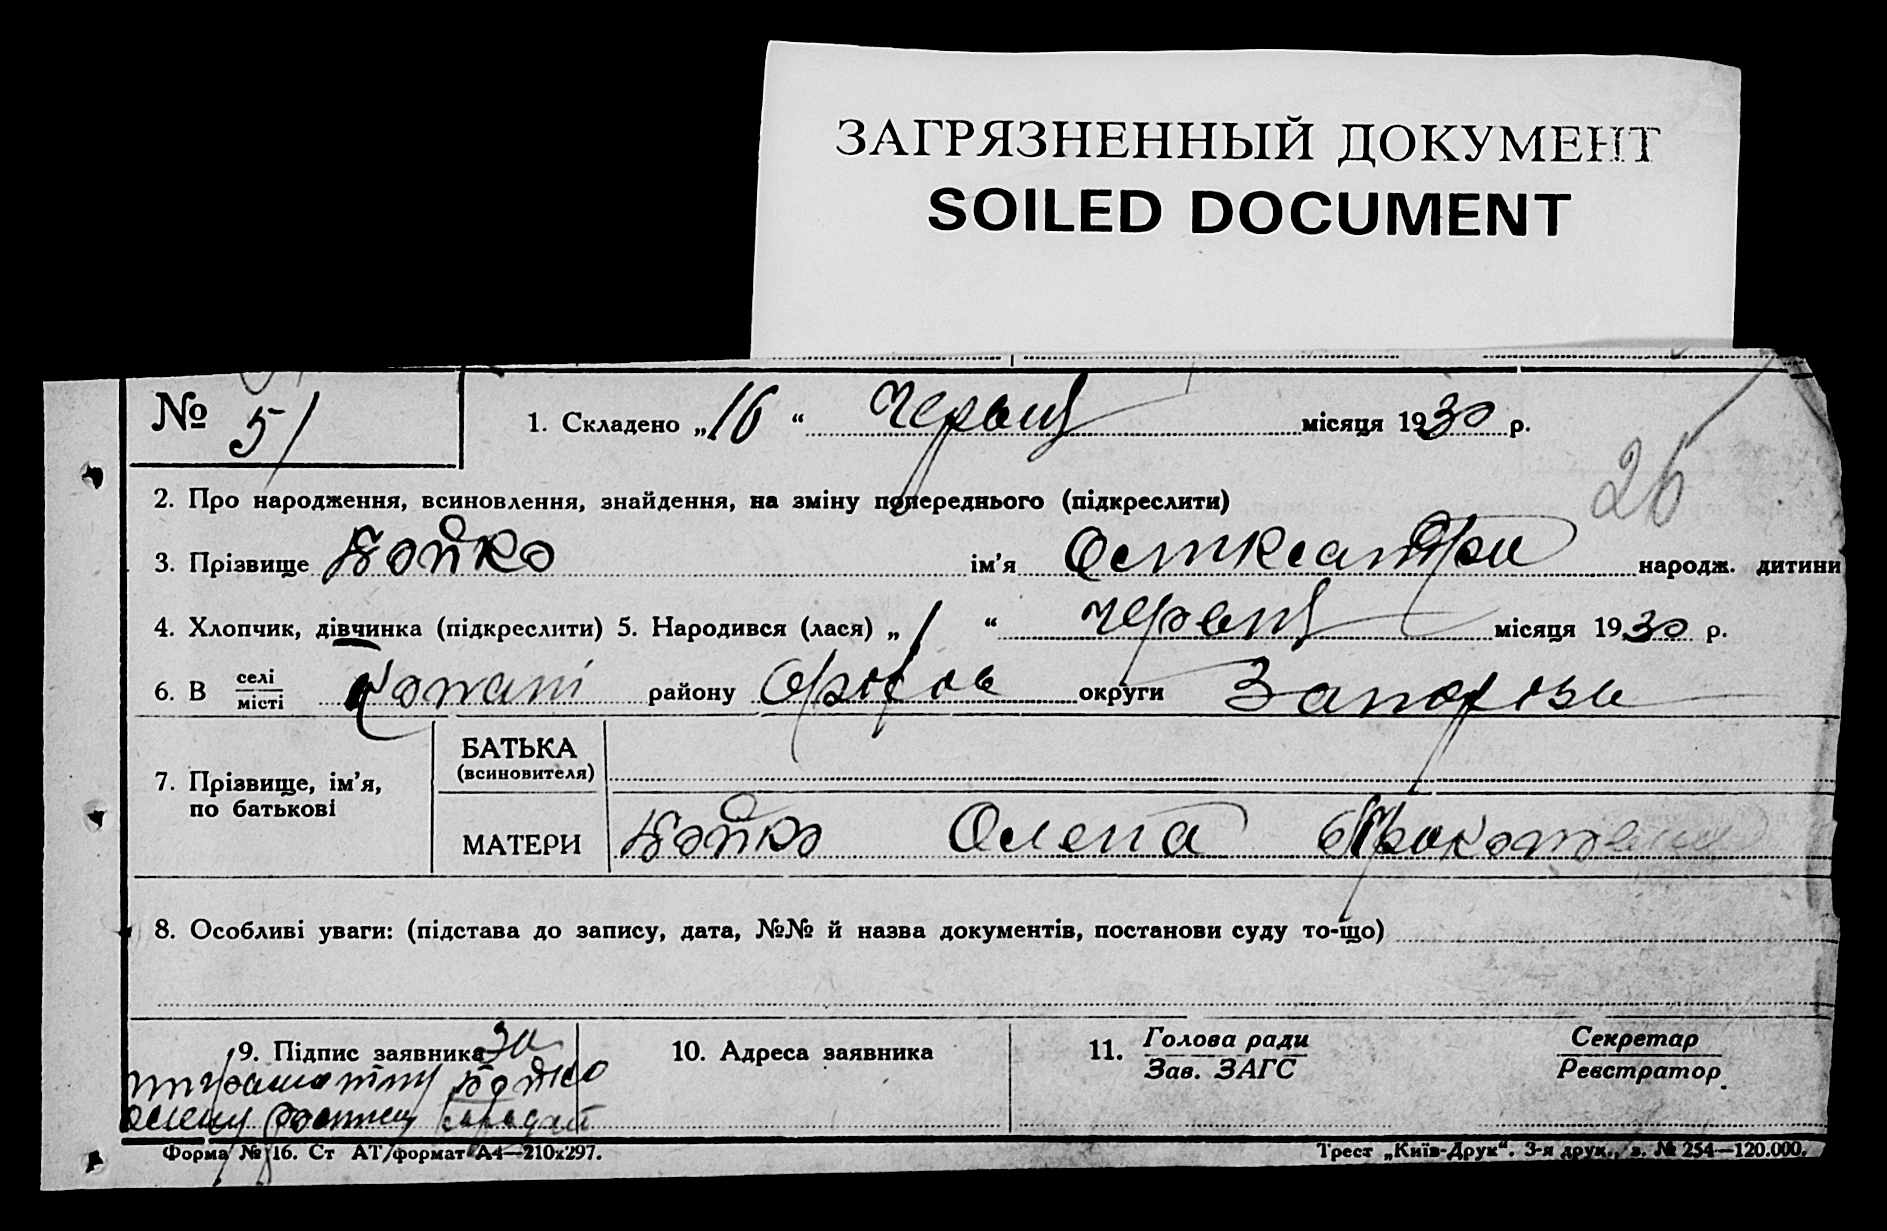 ЗАГРЯЗНЕННЫЙ ДОКУМЕНТ
SOILED DOCUMENT
№ 51
1. Складено „16“ червця місяця 1930 р.
26
2. Про народження, всиновлення, знайдення, на зміну попереднього (підкреслити)
3. Прізвище Бойко ім’я народж. дитини
4. Хлопчик, дівчинка (підкреслити) 5. Народився (лася) „1“ червця місяця 1930 р.
6. В селі
місті Копані району Оріхов округи Запорізь
7. Прізвище, ім’я,
по батькові
БАТЬКА
(всиновителя)
МАТЕРИ Бойко Олена
8. Особливі уваги: (підстава до запису, дата, №№ й назва документів, постанови суду то-що)
9. Підпис заявника За
Бойко
10. Адреса заявника
11. Голова ради
Зав. ЗАГС
Секретар
Реєстратор
Форма № 16. Ст АТ/формат А4—210х297.
Трест „Київ-Друк“. 3-я друк., з. № 254—120.000.